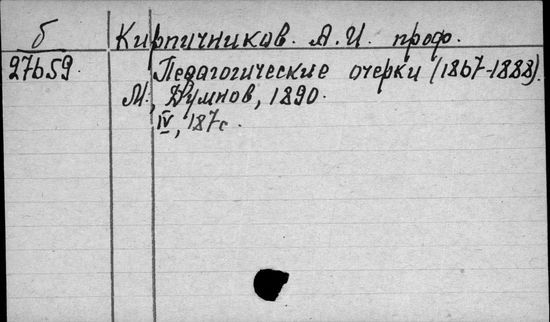 б Кирпичников. А. И. проф.
27659. Педагогические очерки (1867-1888).
М., Думнов, 1890.
IV, 187 с.